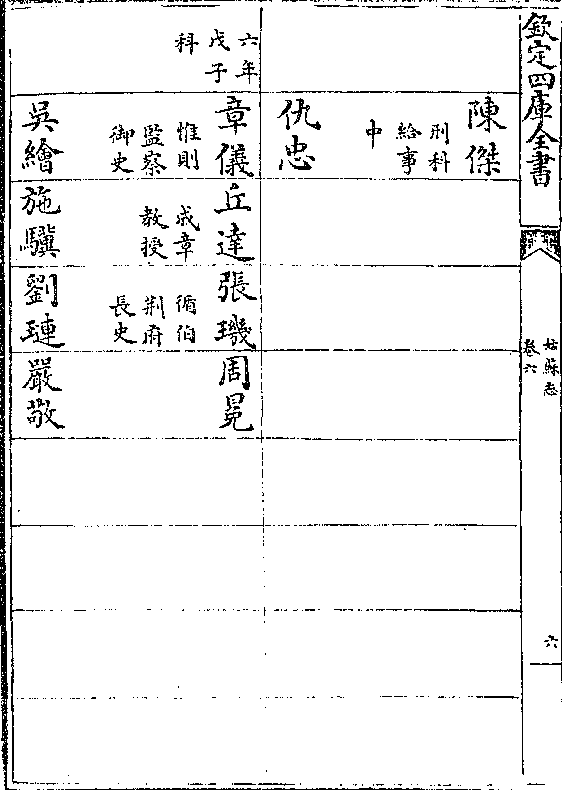 欽定四庫全書
姑蘇志
卷六
六
陳傑
刑科
給事
中
仇忠
六年
戊子
科
章儀
惟則
監察
御史
吳繪
丘達
成章
教授
施驥
張璣
循伯
荆府
長史
劉璉
周冕
嚴敬